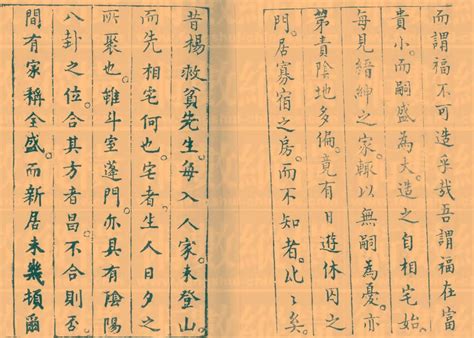 而謂福不可造乎哉吾謂福在富
貴小而嗣盛為大造之自相宅始
每見縉紳之家輒以無嗣為憂亦
第責陰地多偏竟有日遊休囚之
門居寡宿之房而不知者比〻矣
昔楊救貧先生每入人家未登山
而先相宅何也宅者生人日夕之
所聚也雖斗室蓬門亦具有陰陽
八卦之位合其方者昌不合則否
間有家稱全盛而新居未幾頓爾